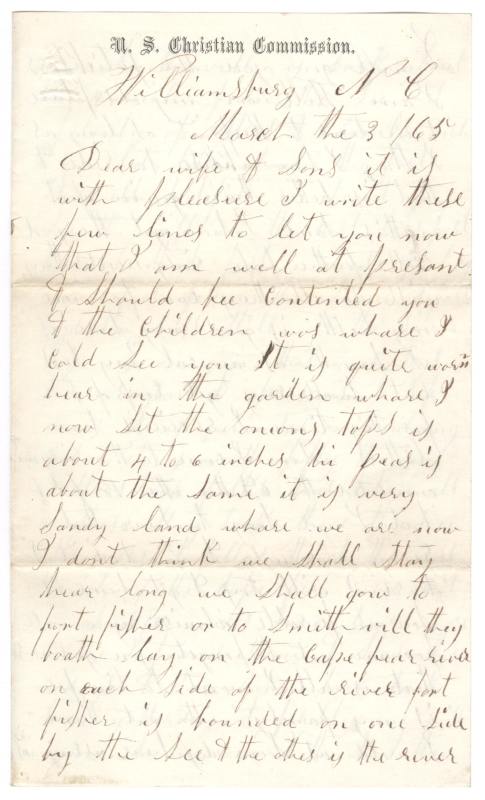 U. S. Christian Commission.
Williamsburg N C
March the 3 /65
Dear wife & Sons it is
with pleasure I write these
few lines to let you now
that I am well at presant
I should bee Contented you
& the Children was whare I
Cold See you It is quite warm
hear in the garden whare I
now Set the onions tops is
about 4 to 6 inches hi peas is
about the same it is very
Sandy land whare we are now
I dont think we Shall Stay
hear long we Shall gow to
fort fisher or to Smith vill they
boath lay on the Cape fear river
on each Side of the river fort
fisher is bounded on one Side
by the See & the other is the river